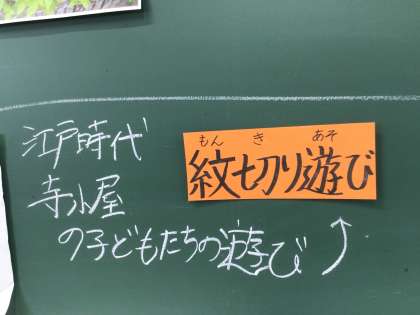 江戸時代
寺小屋
の子どもたちの遊び
もん き あそ
紋切り遊び